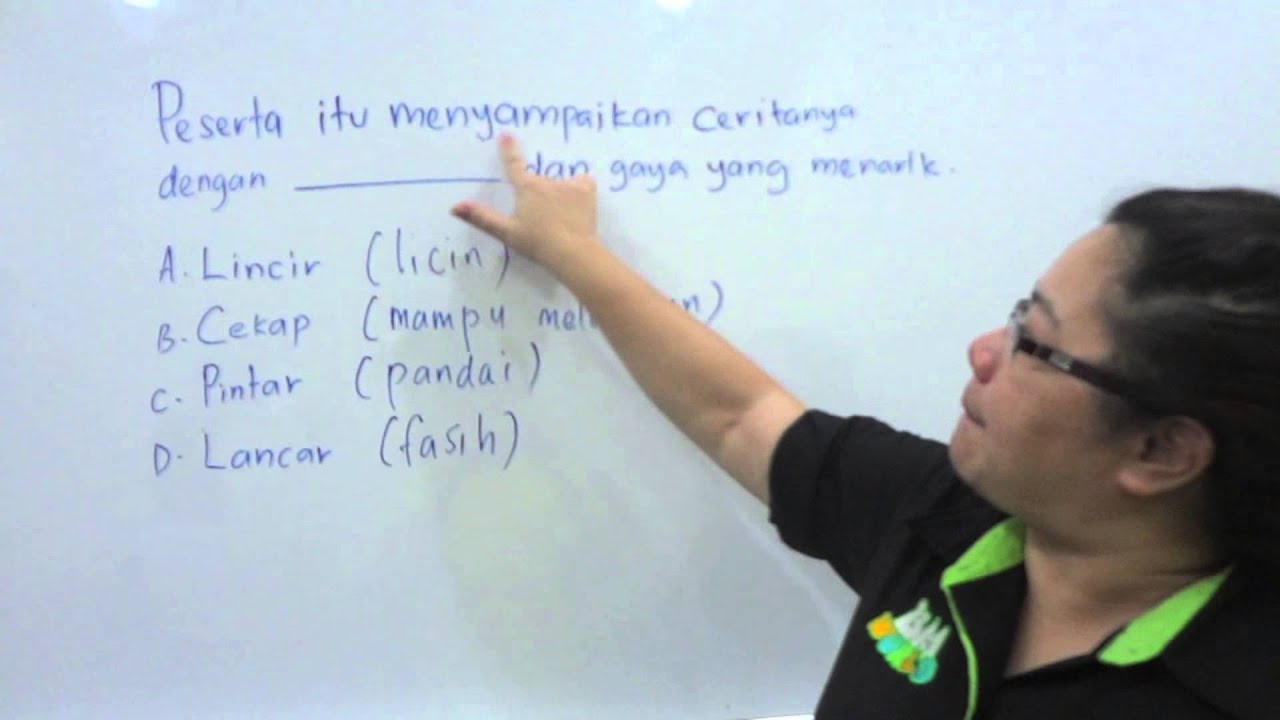 Peserta itu menyampaikan ceritanya
dengan ________ dan gaya yang menarik.
A. Lincir (licin)
B. Cekap (mampu
C. Pintar (pandai)
D. Lancar (fasih)
BM